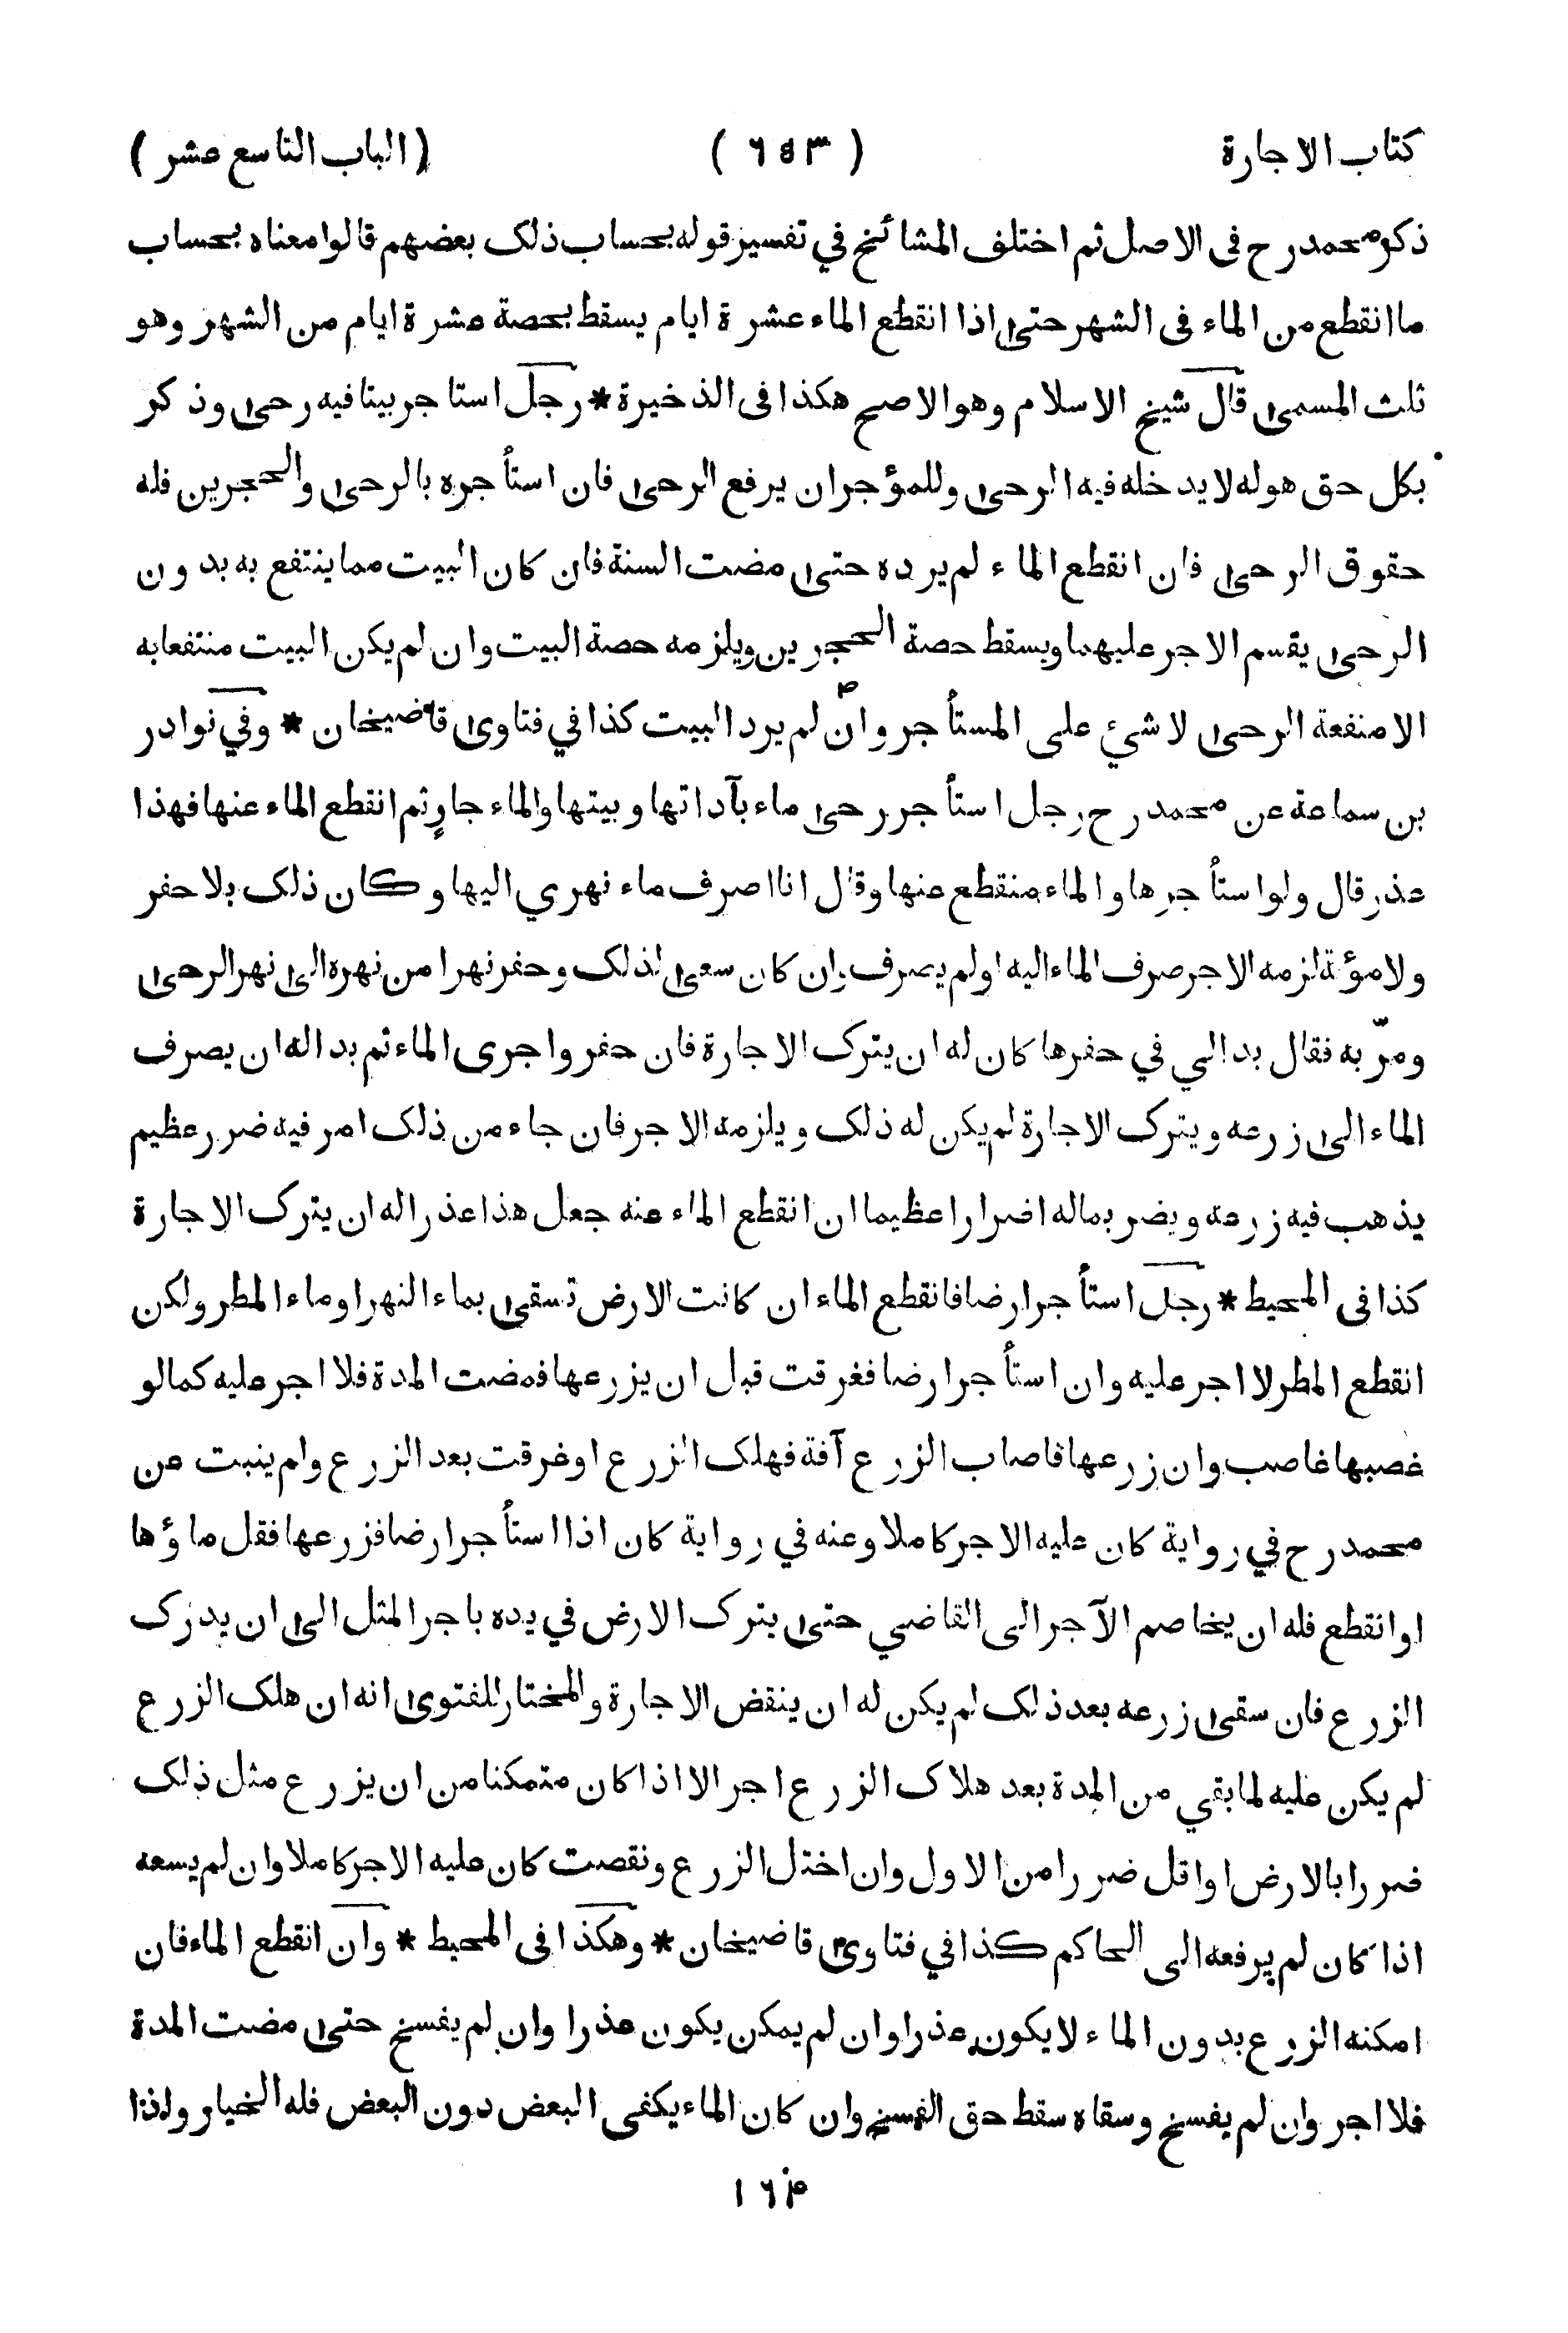 كتاب الاجارة ( ٦٤٣ ) (الباب التاسع عشر)
ذكر محمد رح فى الاصل ثم اختلف المشائخ في تفسير قوله بحساب ذلک بعضهم قالوا معناه بحساب
ما انقطع من الماء فى الشهر حتى اذا انقطع الماء عشرة ايام يسقط بحصة عشرة ايام من الشهر وهو
ثلث المسمى قال شيخ الاسلام وهو الاصح هكذا فى الذخيرة * رجل استاجر بيتا فيه رحى وذكر
بكل حق هو له لا يدخله فيه الرحى وللمؤجر ان يرفع الرحى فان استأجره بالرحى والحجرين فله
حقوق الرحى فان انقطع الماء لم يرده حتى مضت السنة فان كان البيت مما ينتفع به بدون
الرحى يقسم الاجر عليهما ويسقط حصة الحجرين ويلزمه حصة البيت وان لم يكن البيت منتفعا به
الا منفعة الرحى لا شئ على المستأجر وان لم يرد البيت كذا في فتاوى قاضيخان * وفي نوادر
بن سماعة عن محمد رح رجل استأجر رحى ماء بآداتها وبيتها والماء جارٍ ثم انقطع الماء عنها فهذا
عذر قال ولو استأجرها والماء منقطع عنها وقال انا اصرف ماء نهري اليها وكان ذلک بلا حفر
ولا مؤنة لزمه الاجر صرف الماء اليه او لم يصرف وان كان سعى لذلک وحفر نهرا من نهره الى نهر الرحى
ومرّ به فقال بدا لي في حفرها كان له ان يترک الاجارة فان حفر واجرى الماء ثم بدا له ان يصرف
الماء الى زرعه ويترک الاجارة لم يكن له ذلک ويلزمه الاجر فان جاء من ذلک امر فيه ضرر عظيم
يذهب فيه زرعه ويضر بماله اضرارا عظيما ان انقطع الماء عنه جعل هذا عذرا له ان يترک الاجارة
كذا فى المحيط * رجل استأجر ارضا فانقطع الماء ان كانت الارض تسقى بماء النهر او ماء المطر ولكن
انقطع المطر لا اجر عليه وان استأجر ارضا فغرقت قبل ان يزرعها فمضت المدة فلا اجر عليه كما لو
غصبها غاصب وان زرعها فاصاب الزرع آفة فهلک الزرع او غرقت بعد الزرع ولم ينبت عن
محمد رح في رواية كان عليه الاجر كاملا وعنه في رواية كان اذا استأجر ارضا فزرعها فقل ماؤها
او انقطع فله ان يخاصم الآجر الى القاضي حتى يترک الارض في يده باجر المثل الى ان يدرک
الزرع فان سقى زرعه بعد ذلک لم يكن له ان ينقض الاجارة والمختار للفتوى انه ان هلک الزرع
لم يكن عليه لما بقي من المدة بعد هلاک الزرع اجر الا اذا كان متمكنا من ان يزرع مثل ذلک
ضررا بالارض او اقل ضررا من الاول وان اختل الزرع ونقصت كان عليه الاجر كاملا وان لم يسعه
اذا كان لم يرفعه الى الحاكم كذا في فتاوى قاضيخان * وهكذا فى المحيط * وان انقطع الماء فان
امكنه الزرع بدون الماء لا يكون عذرا وان لم يمكن يكون عذرا وان لم يفسخ حتى مضت المدة
فلا اجر وان لم يفسخ وسقاه سقط حق الفسخ وان كان الماء يكفى البعض دون البعض فله الخيار واذا
١٦۴